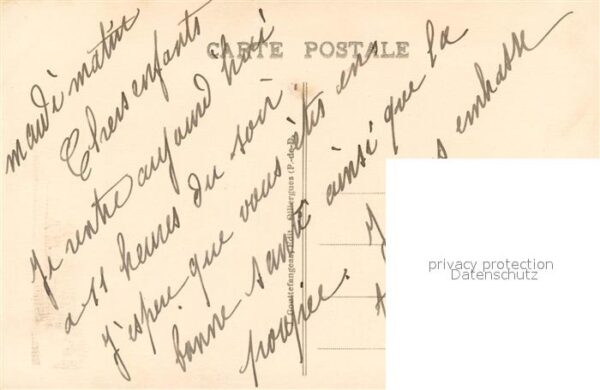 CARTE POSTALE
mardi matin
Chers enfants
Je rentre aujourd hui
a 11 heures du soir.
J'espere que vous êtes en
bonne santé ainsi que la
poupée.
embrasse
Goutefangeas, Édit. Olliergues (P.-de-D.)
privacy protection
Datenschutz